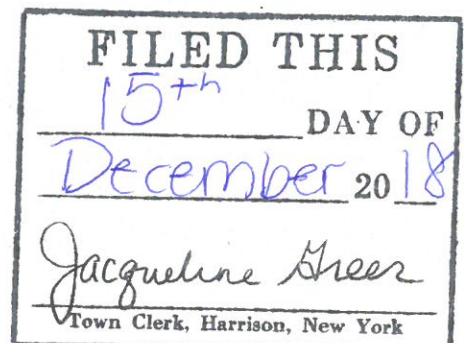 FILED THIS
15th DAY OF
December 2018
Jacqueline Greer
Town Clerk, Harrison, New York